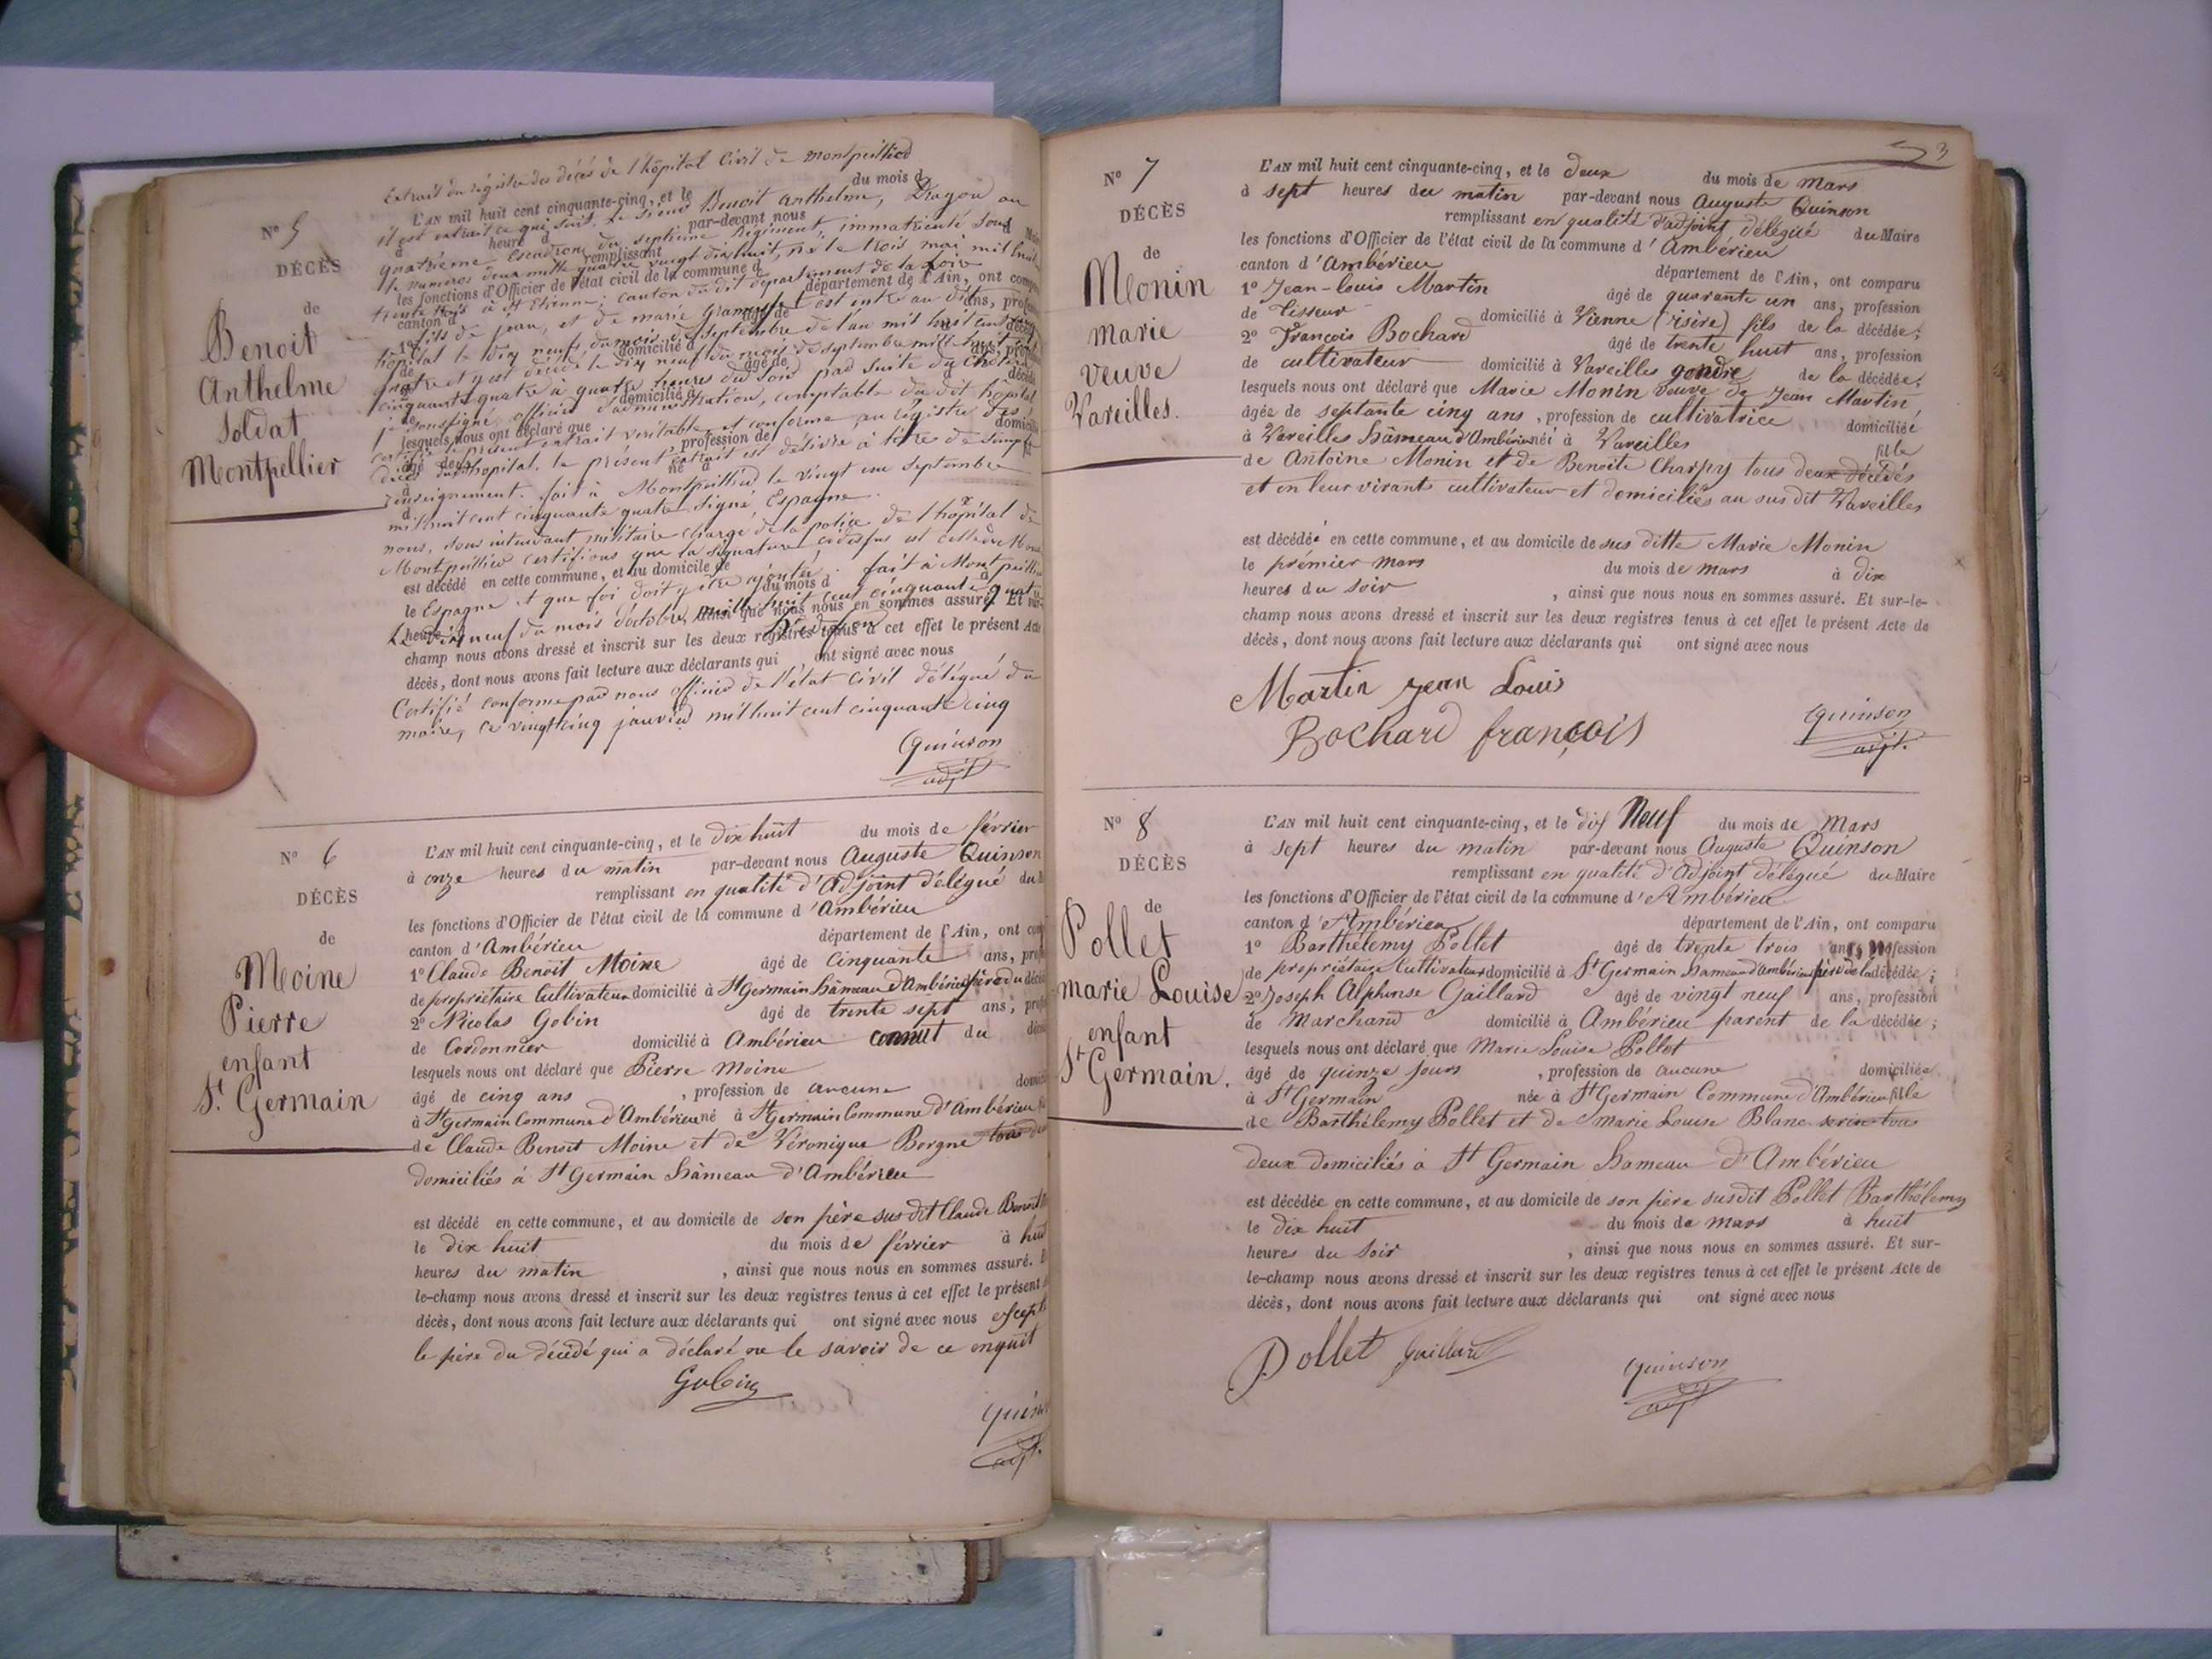 N° 5
DÉCÈS
de
Benoit
Anthelme
Soldat
Montpellier
Extrait du régistre des décès de l'hôpital Civil de Montpellier
L'AN mil huit cent cinquante-cinq, et le du mois d
il est extrait ce qui suit. Le sieur Benoit anthelme, Dragon au
heure d par-devant nous
quatrième Escadron du septième Régiment, immatriculé sous
remplissant
le numéros deux mille quatre vingt dix huit, né le trois mai mil huit
les fonctions d'Officier de l'état civil de la commune d
trente trois à St Etienne, canton du dit département de la Loire
canton d département de l'Ain, ont
1° fils de jean, et de marie est entré au dit
hôpital le dix neuf du mois de septembre de l'an mil huit cent
domicilié à
quatre et y est décédé le dix neuf du mois de septembre mille huit cent
âgé de
cinquante quatre à quatre heures du soir par suite du
domicilié à
je soussigné, officier d'administration, comptable du dit hôpital
lesquels nous ont déclaré que
certifie le présent extrait veritable et conforme au régistre des
âgé de profession de
décès hopital. le présent extrait est délivré à titre de simple
né à
renseignement. fait à Montpellier le vingt un septembre
mil huit cent cinquante quatre signé Espagne
nous, sous intendant militaire chargé de la police de l'hôpital de
Montpellier certifions que la signature cidessus est celle de
est décédé en cette commune, et au domicile de
le Espagne et que foi doit y être ajoutée. fait à Montpellier
du mois d
le dix neuf du mois d'octobre mille huit cent cinquante quatre
heure ainsi que nous nous en sommes assuré. Et sur-
champ nous avons dressé et inscrit sur les deux registres tenus à cet effet le présent Acte
décès, dont nous avons fait lecture aux déclarants qui ont signé avec nous
Certifié conforme par nous officier de l'état civil délégué du
maire, ce vingt cinq janvier mil huit cent cinquante cinq
Quinson
adjt
N° 6
DÉCÈS
de
Moine
Pierre
enfant
St. Germain
L'AN mil huit cent cinquante-cinq, et le dix huit du mois de février
à onze heures du matin par-devant nous Auguste Quinson
remplissant en qualité d'Adjoint délégué du
les fonctions d'Officier de l'état civil de la commune d'Ambérieu
canton d'Ambérieu département de l'Ain, ont
1° Claude Benoit Moine âgé de cinquante ans,
de propriétaire Cultivateur domicilié à St Germain hâmeau d'Ambérieu père du
2° Nicolas Gobin âgé de trente sept ans,
de Cordonnier domicilié à Ambérieu connut du
lesquels nous ont déclaré que Pierre Moine
âgé de cinq ans , profession de aucune
à St Germain Commune d'Ambérieu né à St Germain Commune d'Ambérieu
de Claude Benoit Moine et de Véronique Borgne tous
domiciliés à St Germain hâmeau d'Ambérieu
est décédé en cette commune, et au domicile de son père sus dit Claude Benoit
le dix huit du mois de février à huit
heures du matin , ainsi que nous nous en sommes assuré.
le-champ nous avons dressé et inscrit sur les deux registres tenus à cet effet le présent
décès, dont nous avons fait lecture aux déclarants qui ont signé avec nous
le père du décédé qui a déclaré ne le savoir de ce enquit
Gobin
Quinson
adjt.
3
N° 7
DÉCÈS
de
Monin
marie
veuve
Vareilles.
L'AN mil huit cent cinquante-cinq, et le deux du mois de mars
à sept heures du matin par-devant nous Auguste Quinson
remplissant en qualité d'adjoint délégué du Maire
les fonctions d'Officier de l'état civil de la commune d'Ambérieu
canton d'Ambérieu département de l'Ain, ont comparu
1° Jean-louis Martin âgé de quarante un ans, profession
de Tisseur domicilié à Vienne (isère) fils de la décédée;
2° François Bochard âgé de trente huit ans, profession
de cultivateur domicilié à Vareilles gendre de la décédée;
lesquels nous ont déclaré que Marie Monin veuve de Jean Martin
âgée de septante cinq ans , profession de cultivatrice domiciliée
à Vareilles hâmeau d'Ambérieu né à Vareilles fille
de Antoine Monin et de Benoite Charpy tous deux décédés
et en leur vivants cultivateur et domiciliés au sus dit Vareilles
est décédée en cette commune, et au domicile de sus ditte Marie Monin
le prémier mars du mois de mars à dix
heures du soir , ainsi que nous nous en sommes assuré. Et sur-le-
champ nous avons dressé et inscrit sur les deux registres tenus à cet effet le présent Acte de
décès, dont nous avons fait lecture aux déclarants qui ont signé avec nous
Martin jean Louis
Bochard françois
Quinson
adjt.
N° 8
DÉCÈS
de
Pollet
marie Louise
enfant
St Germain.
L'AN mil huit cent cinquante-cinq, et le dix Neuf du mois de Mars
à sept heures du matin par-devant nous Auguste Quinson
remplissant en qualité d'Adjoint délégué du Maire
les fonctions d'Officier de l'état civil de la commune d'Ambérieu
canton d'Ambérieu département de l'Ain, ont comparu
1° Barthélemy Pollet âgé de trente trois ans, profession
de propriétaire Cultivateur domicilié à St Germain hameau d'Ambérieu père de la décédée;
2° Joseph Alphonse Gaillard âgé de vingt neuf ans, profession
de Marchand domicilié à Ambérieu parent de la décédée;
lesquels nous ont déclaré que Marie Louise Pollet
âgé de quinze jours , profession de aucune domiciliée
à St Germain née à St Germain Commune d'Ambérieu fille
de Barthélemy Pollet et de Marie Louise Blanc tous
deux domiciliés à St Germain hameau d'Ambérieu
est décédée en cette commune, et au domicile de son père susdit Pollet Barthélemy
le dix huit du mois de mars à huit
heures du soir , ainsi que nous nous en sommes assuré. Et sur-
le-champ nous avons dressé et inscrit sur les deux registres tenus à cet effet le présent Acte de
décès, dont nous avons fait lecture aux déclarants qui ont signé avec nous
Pollet Gaillard
Quinson
adjt